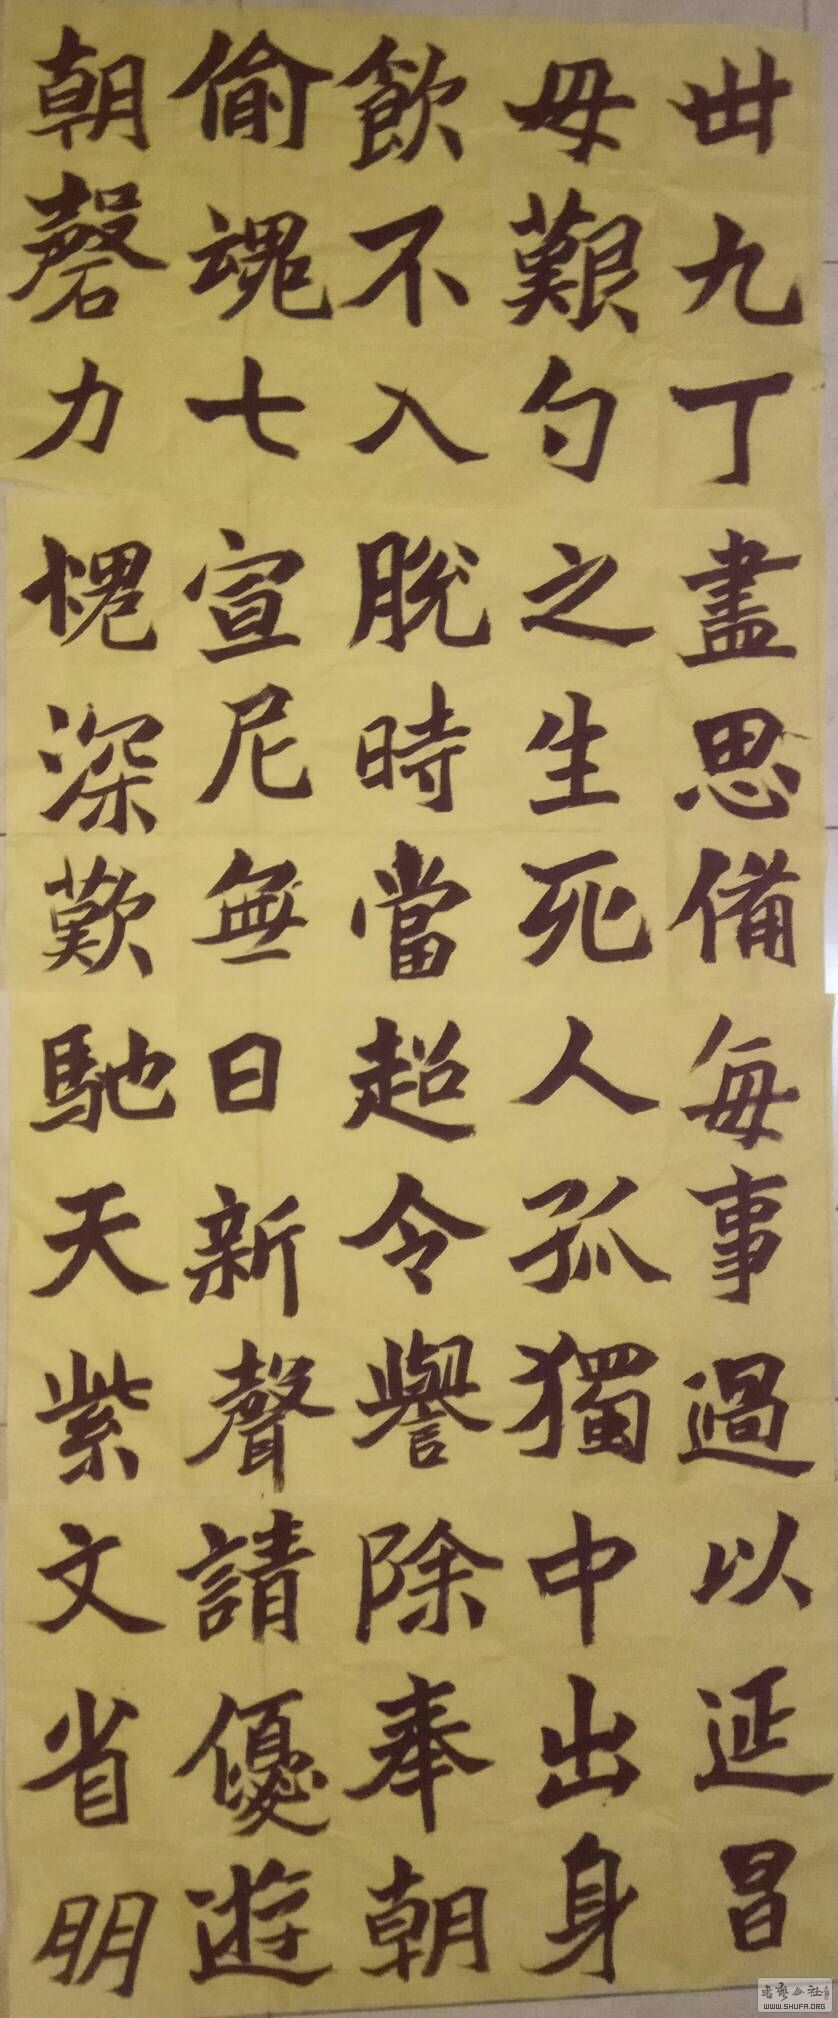 丗九丁盡思備每事過以延昌
母艱勺之生死人孤獨中出身
飲不入脫時當超令譽除奉朝
偷魂七宣尼無日新聲請優遊
朝磬力愧深歎馳天紫文省明
書藝公社
WWW.SHUFA.ORG